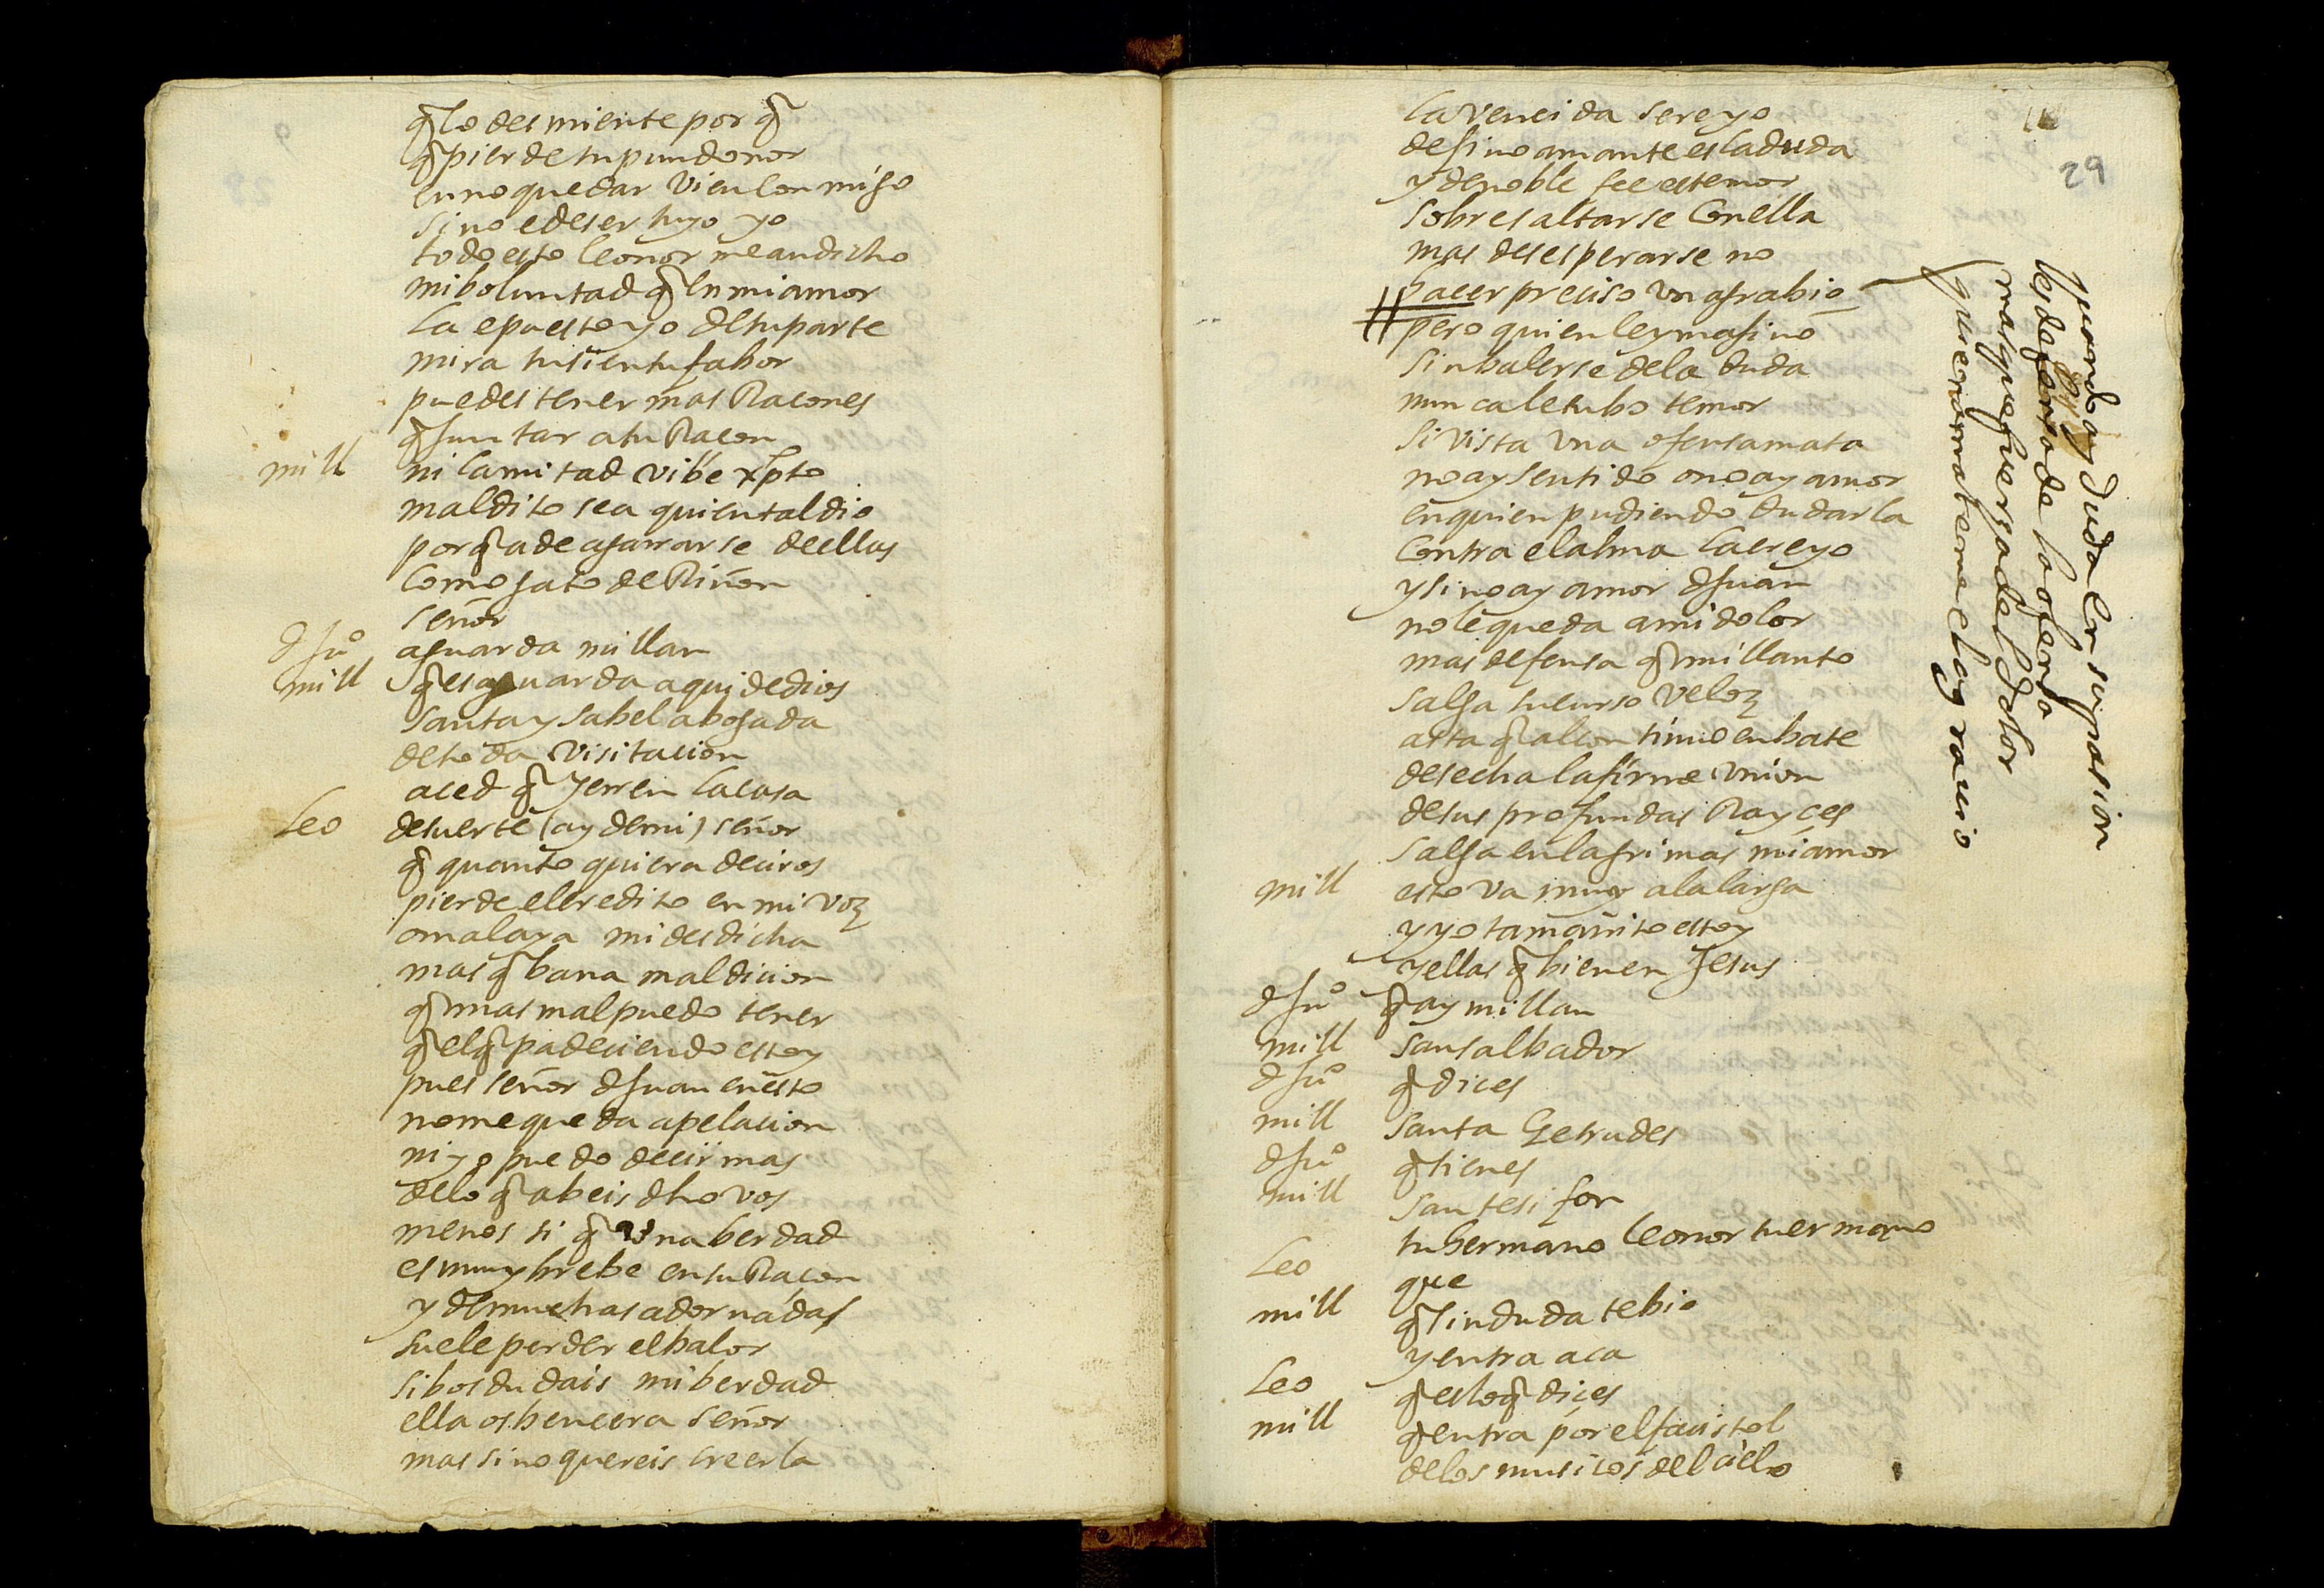 q̃ lo desmiente por q̃
q̃ pierde tu pundonor
en no quedar vien con migo
si no e de ser tuyo yo
todo esto leonor me an dicho
mi boluntad q̃ en mi amor
la e puesto yo de tu parte
mira tu si en tu fabor
puedes tener mas Raçones
q̃ juntar a tu Raçon
mill ni la mitad vibe xpto
maldito sea quien tal dio
porq̃ a de agarrarse de ellas
como gato de Riñon
señor
d Juº aguarda millan
mill q̃ es aguarda aqui de dios
santa ysabel abogada
de toda visitacion
aced q̃ yerren la casa
Leo de suerte (ay de mi) señor
q̃ quanto quiera deciros
pierde el credito en mi voz
o mal aya mi desdicha
mas q̃ bana maldicion
q̃ mas mal puedo tener
q̃ el q̃ padeciendo estoy
pues señor d Juan en esto
no me queda apelacion
ni yo puedo decir mas
de lo q̃ abeis dho vos
menos si q̃ una berdad
es muy brebe en su Raçon
y de muchas adornadas
suele perder el balor
si bos dudais mi berdad
ella os bencera señor
mas si no quereis creerla
29
la vencida sere yo
de fino amante es la duda
y de noble fee es temor
sobresaltarse con ella
mas desesperarse no
hacer preciso un agrabio
pero quien le ymagino
sin balerse de la duda
nunca le tubo temor
si vista una ofensa mata
no ay sentido o no ay amor
en quien pudiendo dudarla
contra el alma la creyo
y si no ay amor d Juan
no le queda a mi dolor
mas defensa q̃ mi llanto
salga su curso veloz
asta q̃ al continuo enbate
desecha la firme union
de sus profundas Rayces
salga en lagrimas mi amor
mill esto va muy a la larga
y yo tamañito estoy
y ellas q̃ bienen Jesus
d Juº q̃ ay millan
mill san salbador
d Juº q̃ dices
mill santa Getrudes
d Juº q̃ tienes
mill san tesifon
tu hermano leonor tu ermano
Leo que
mill q̃ sin duda te bio
y entra aca
Leo q̃ es lo q̃ dices
mill q̃ entra por el facistol
de los musicos del cielo
quando ay duda en su pasion
es defensa de la ofensa
mas que fuerza del dolor
que no mateme el agrauio